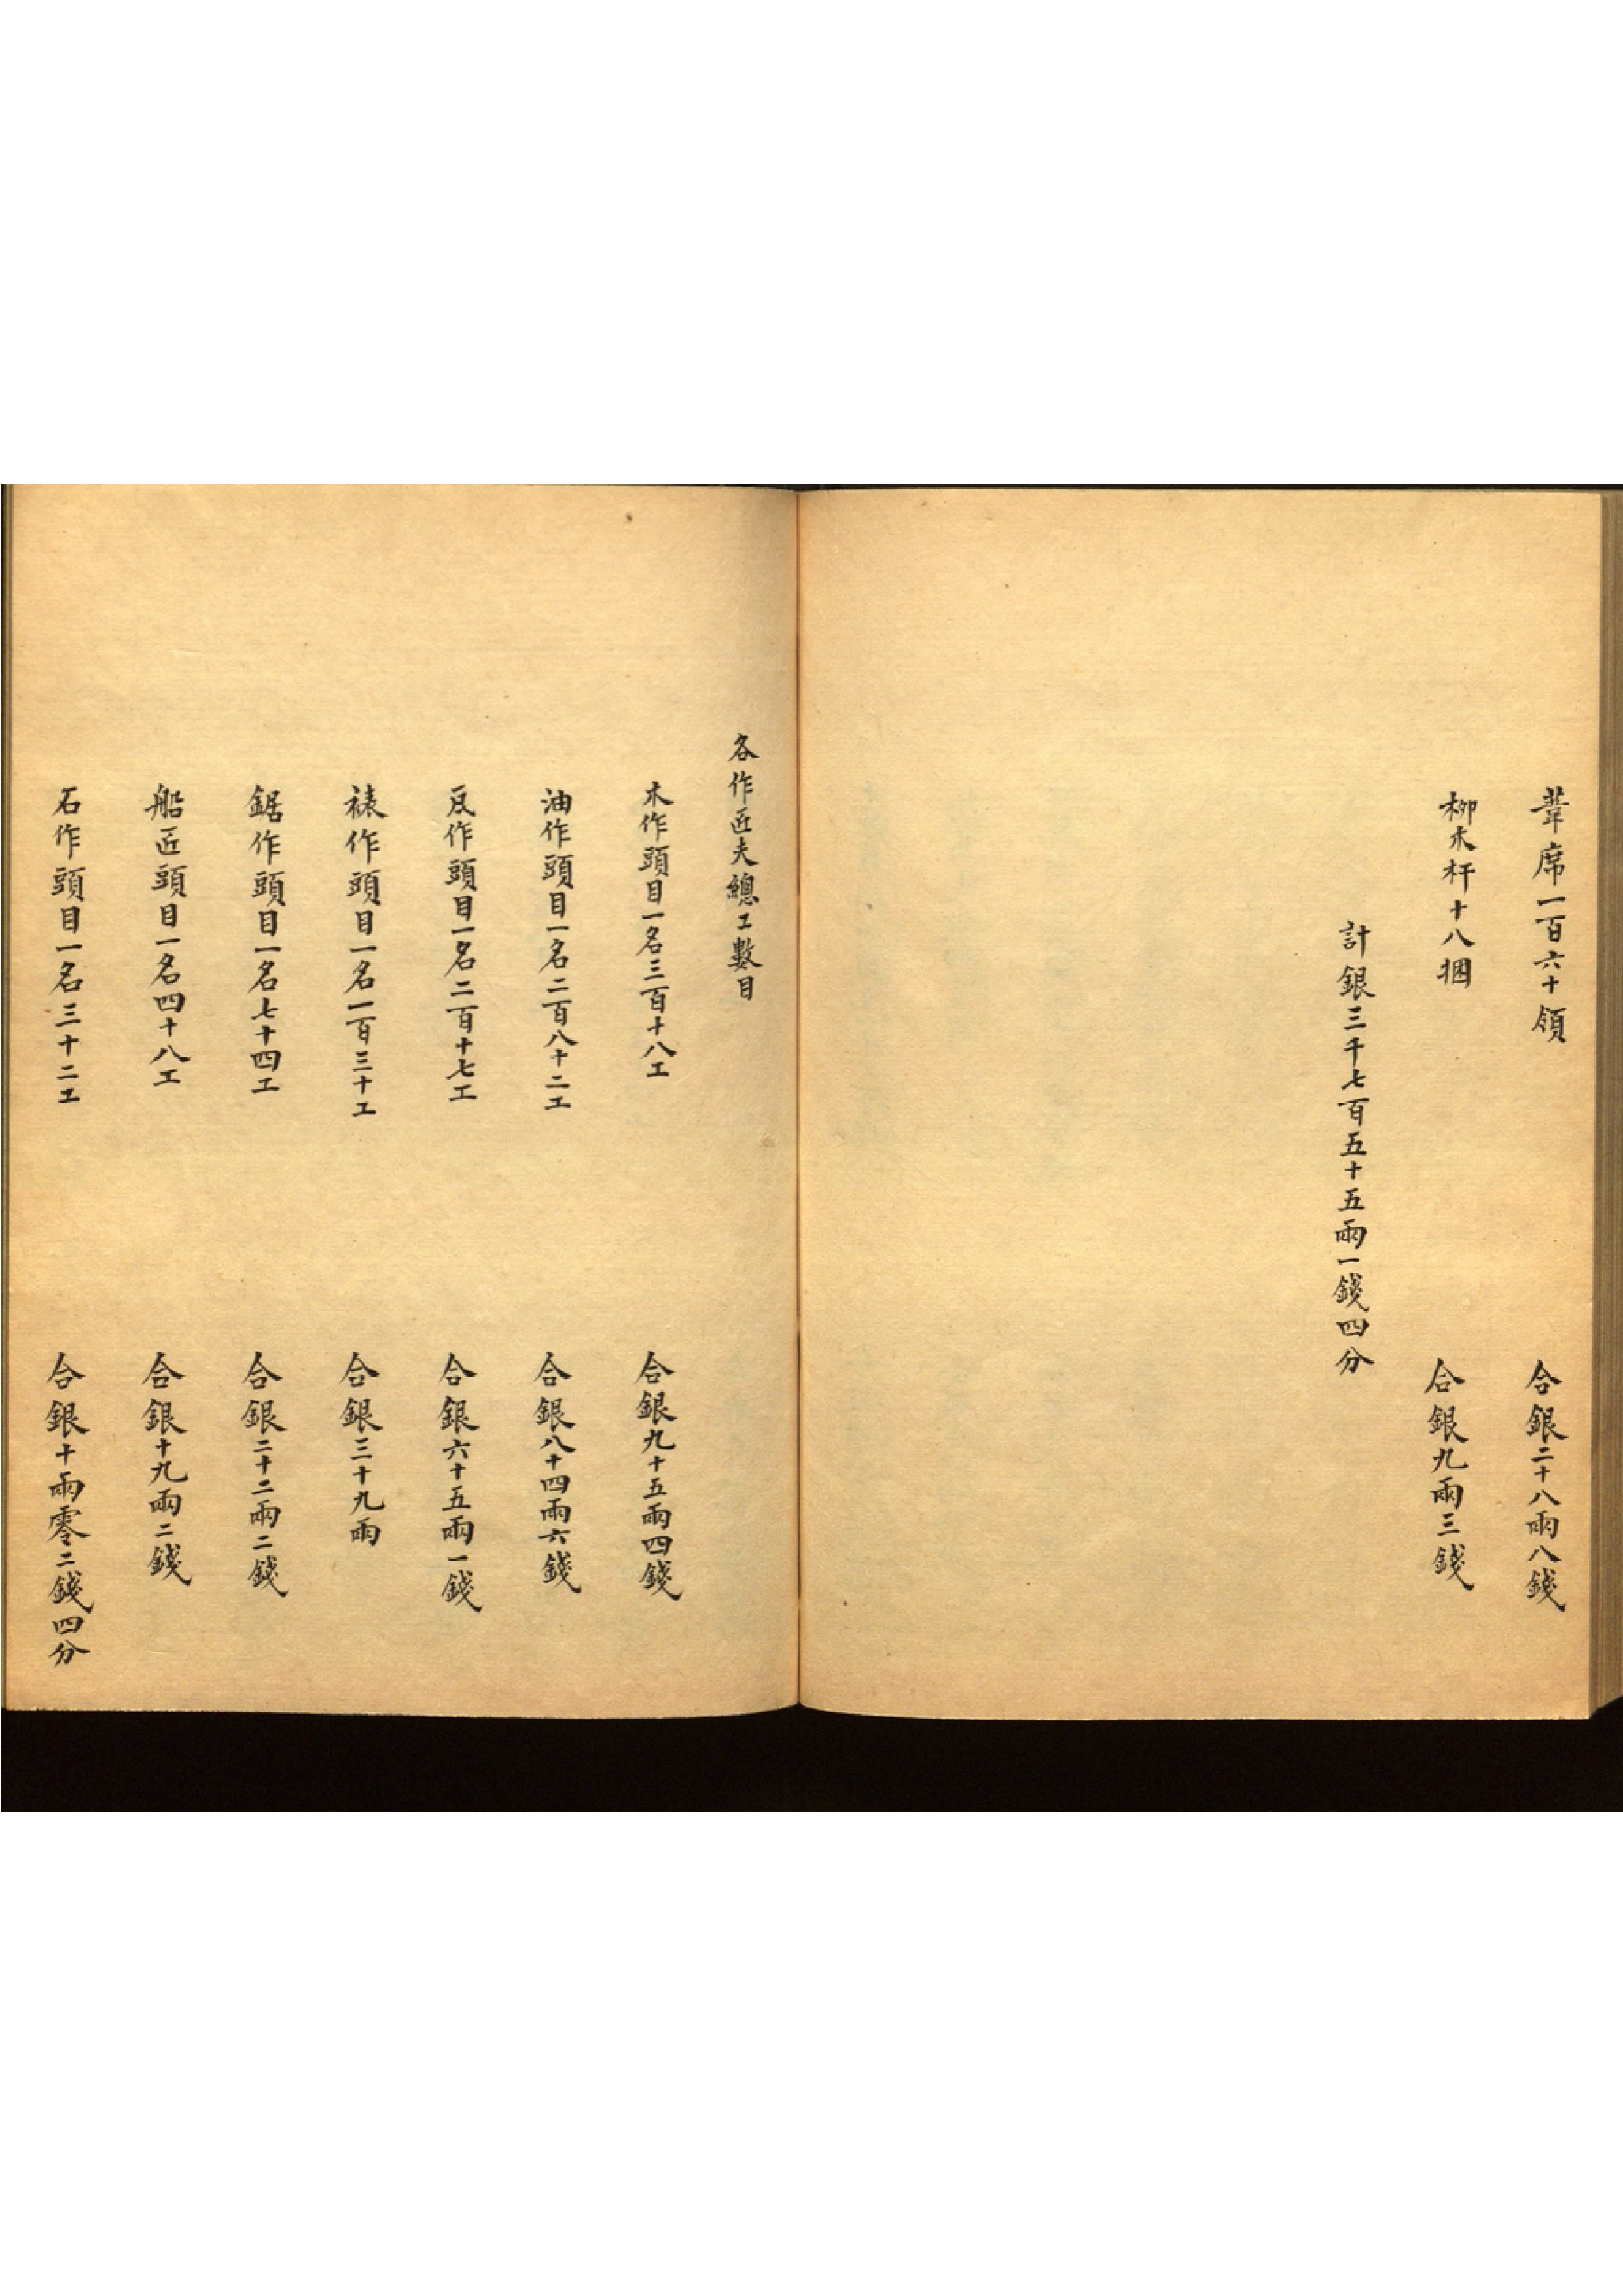 葦席一百六十領　合銀二十八兩八錢
柳木杆十八捆　合銀九兩三錢
計銀三千七百五十五兩一錢四分
各作匠夫總工數目
木作頭目一名三百十八工　合銀九十五兩四錢
油作頭目一名二百八十二工　合銀八十四兩六錢
瓦作頭目一名二百十七工　合銀六十五兩一錢
裱作頭目一名一百三十工　合銀三十九兩
鋸作頭目一名七十四工　合銀二十二兩二錢
船匠頭目一名四十八工　合銀十九兩二錢
石作頭目一名三十二工　合銀十兩零二錢四分